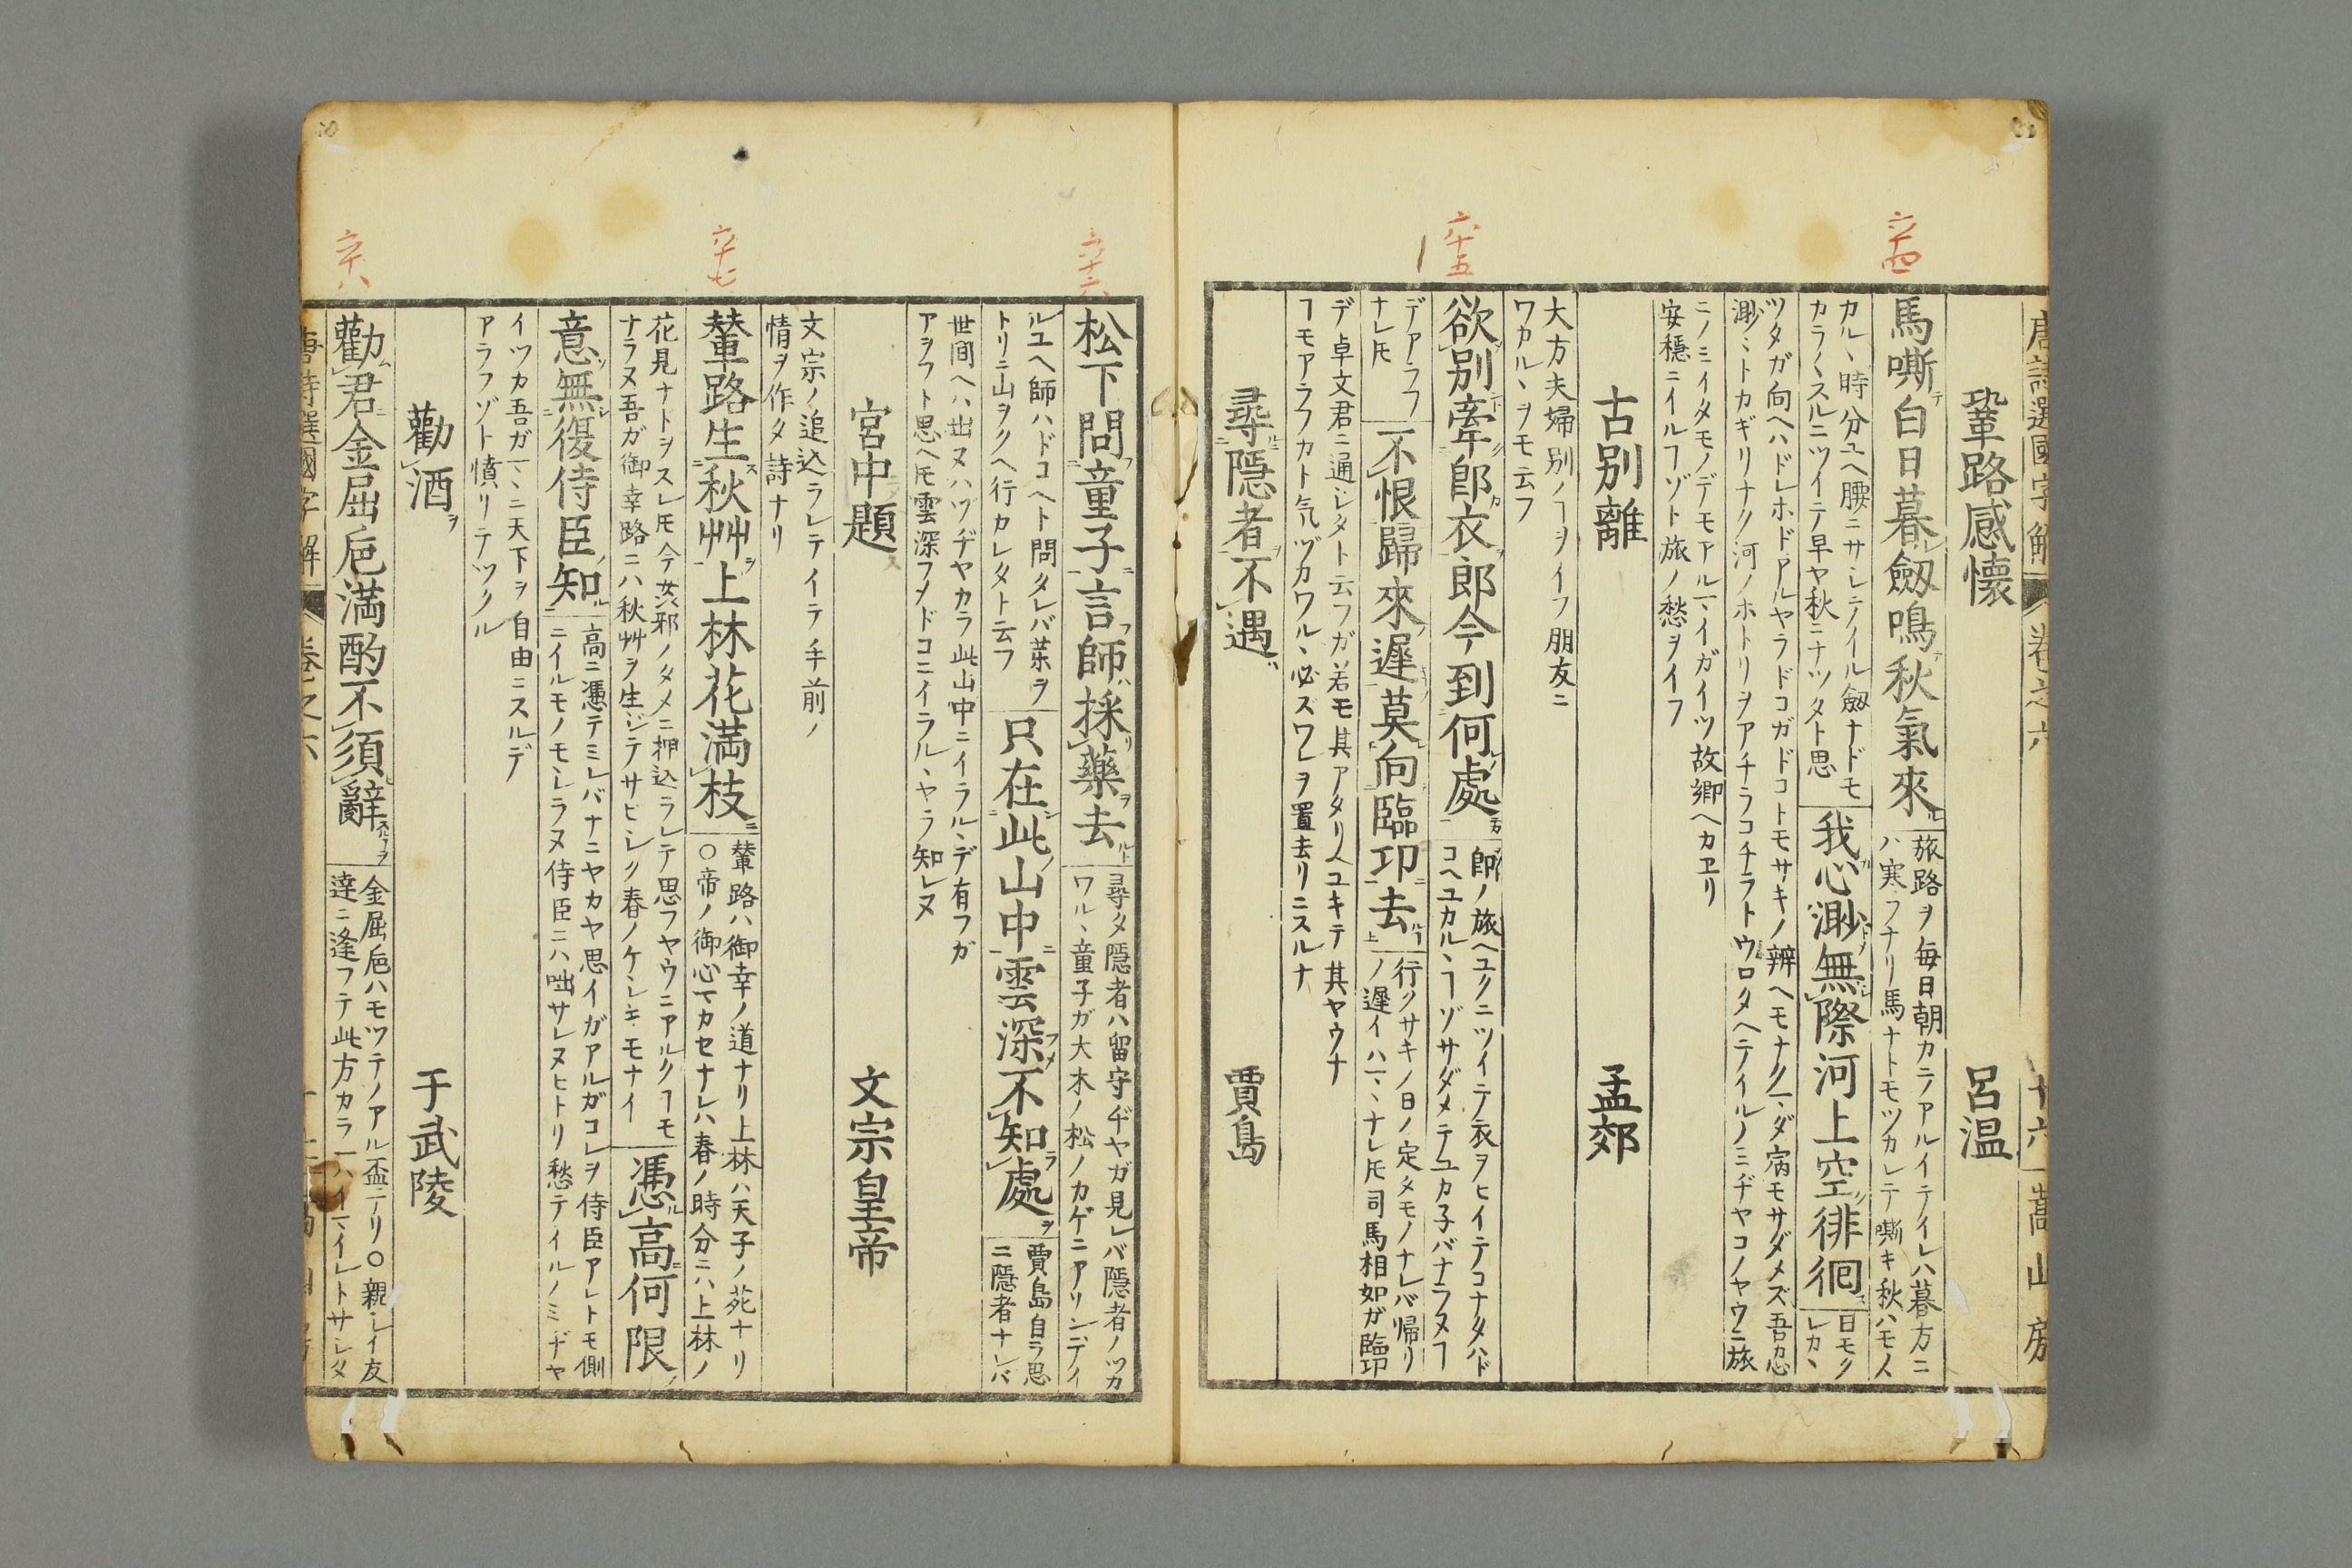 唐詩選國字解 卷之六 十六 嵩山房
鞏路感懷 呂温
馬嘶白日暮劔鳴秋氣來
旅路ヲ毎日朝カラアルイテイレハ暮方ニ
ハ寒フナリ馬ナトモツカレテ嘶キ秋ハモ人
カル丶時分ユヘ腰ニサシテイル劔ナドモ
カラ〱スルニツイテ早ヤ秋ニナツタト思
我心渺無際河上空徘徊
日モク
レカ丶
ツタガ向ヘハドレホドアルヤラドコガドコトモサキノ辨ヘモナク
渺〻トカギリナク河ノホトリヲアチラコチラトウロタヘテイルノミヂヤコノヤウニ旅
ニノミイタモノデモアルマイガイツ故郷ヘカヱリ
安穩ニイルヿゾト旅ノ愁ヲイフ
古別離 孟郊
大方夫婦別ノヿヲイフ朋友ニ
ワカル丶ヲモ云フ
欲別牽郎衣郎今到何處
郎ノ旅ヘユクニツイテ衣ヲヒイテコナタハド
コヘユカル丶ヿゾサダメテユカ子バナラヌヿ
デアラフ
ナレ𪜈
不恨歸來遲莫向臨卭去
行クサキノ日ノ定タモノナレバ帰リ
ノ遲イハ丶ナレ𪜈司馬相如ガ臨卭
デ卓文君ニ通ジタト云フガ若モ其アタリヘユキテ其ヤウナ
ヿモアラフカト気ヅカワル丶必ズワレヲ置去リニスルナ
尋隱者不遇 賈島
松下問童子言師採藥去
尋タ隱者ハ留守ヂヤガ見レバ隱者ノツカ
ワル丶童子ガ大木ノ松ノカゲニアリシデイ
ルユヘ師ハドコヘト問タレバ藥ヲ
トリニ山ヲクヘ行カレタト云フ
只在此山中雲深不知處
賈島自ラ思
ニ隱者ナレバ
世間ヘハ出ヌハヅヂヤカラ此山中ニイラル丶デ有フガ
アラフト思ヘ𪜈雲深フメドコニイラル丶ヤラ知レヌ
宮中題 文宗皇帝
文宗ノ追込ラレテイテ手前ノ
情ヲ作タ詩ナリ
輦路生秋艸上林花満枝
輦路ハ御幸ノ道ナリ上林ハ天子ノ苑ナリ
○帝ノ御心マカセナレハ春ノ時分ニハ上林ノ
花見ナトヲスレ𪜈今姦邪ノタメニ押込ラレテ思フヤウニアルクヿモ
ナラヌ吾ガ御幸路ニハ秋艸ヲ生ジテサビシク春ノケシキモナイ
憑高何限
意無復侍臣知
高ニ憑テミレバナニヤカヤ思イガアルガコレヲ侍臣アレトモ側
ニイルモノモシラヌ侍臣ニハ咄サレヌヒトリ愁テイルノミヂヤ
イツカ吾ガマ丶ニ天下ヲ自由ニスルデ
アラフゾト憤リテツクル
勸酒 于武陵
勸君金屈巵満酌不須辭
金屈巵ハモツテノアル盃ナリ○親シイ友
達ニ逢フテ此方カラ一ハイマイレトサシタ
唐詩選國字解 卷之六